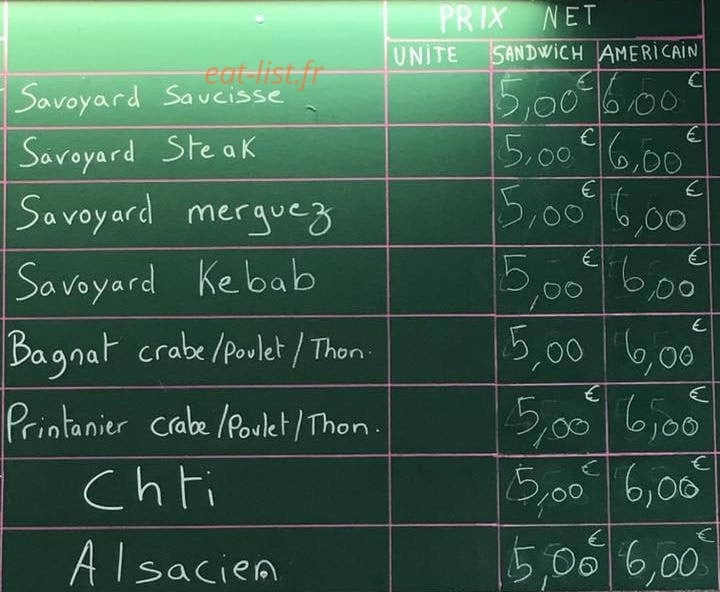 PRIX NET
UNITE SANDWICH AMERICAIN
eat-list.fr
Savoyard Saucisse 5,00€ 6,00€
Savoyard Steak 5,00€ 6,00€
Savoyard merguez 5,00€ 6,00€
Savoyard Kebab 5,00€ 6,00€
Bagnat crabe/Poulet/Thon. 5,00 6,00€
Printanier crabe/Poulet/Thon. 5,00€ 6,00€
Chti 5,00€ 6,00€
Alsacien 5,00€ 6,00€